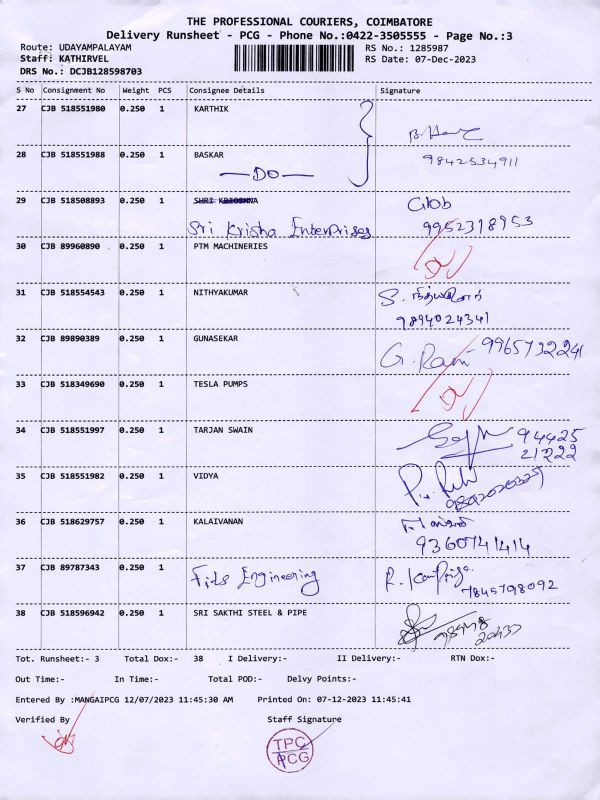 THE PROFESSIONAL COURIERS, COIMBATORE
Delivery Runsheet - PCG - Phone No.:0422-3505555 - Page No.:3
Route: UDAYAMPALAYAM RS No.: 1285987
Staff: KATHIRVEL RS Date: 07-Dec-2023
DRS No.: DCJB128598703
S No Consignment No Weight PCS Consignee Details Signature
27 CJB 518551980 0.250 1 KARTHIK
28 CJB 518551988 0.250 1 BASKAR 9842534911
—DO—
29 CJB 518508893 0.250 1 SHRI KRISHNA Glob
Sri Krisha Enterprises 9952318953
30 CJB 89960890 0.250 1 PTM MACHINERIES
31 CJB 518554543 0.250 1 NITHYAKUMAR
9894024341
32 CJB 89890389 0.250 1 GUNASEKAR G. Ram 9965732241
33 CJB 518349690 0.250 1 TESLA PUMPS
34 CJB 518551997 0.250 1 TARJAN SWAIN 94425
21222
35 CJB 518551982 0.250 1 VIDYA
36 CJB 518629757 0.250 1 KALAIVANAN
9360741414
37 CJB 89787343 0.250 1 Fits Engineering
7845798092
38 CJB 518596942 0.250 1 SRI SAKTHI STEEL & PIPE
Tot. Runsheet:- 3 Total Dox:- 38 I Delivery:- II Delivery:- RTN Dox:-
Out Time:- In Time:- Total POD:- Delvy Points:-
Entered By :MANGAIPCG 12/07/2023 11:45:30 AM Printed On: 07-12-2023 11:45:41
Verified By Staff Signature
TPC
PCG